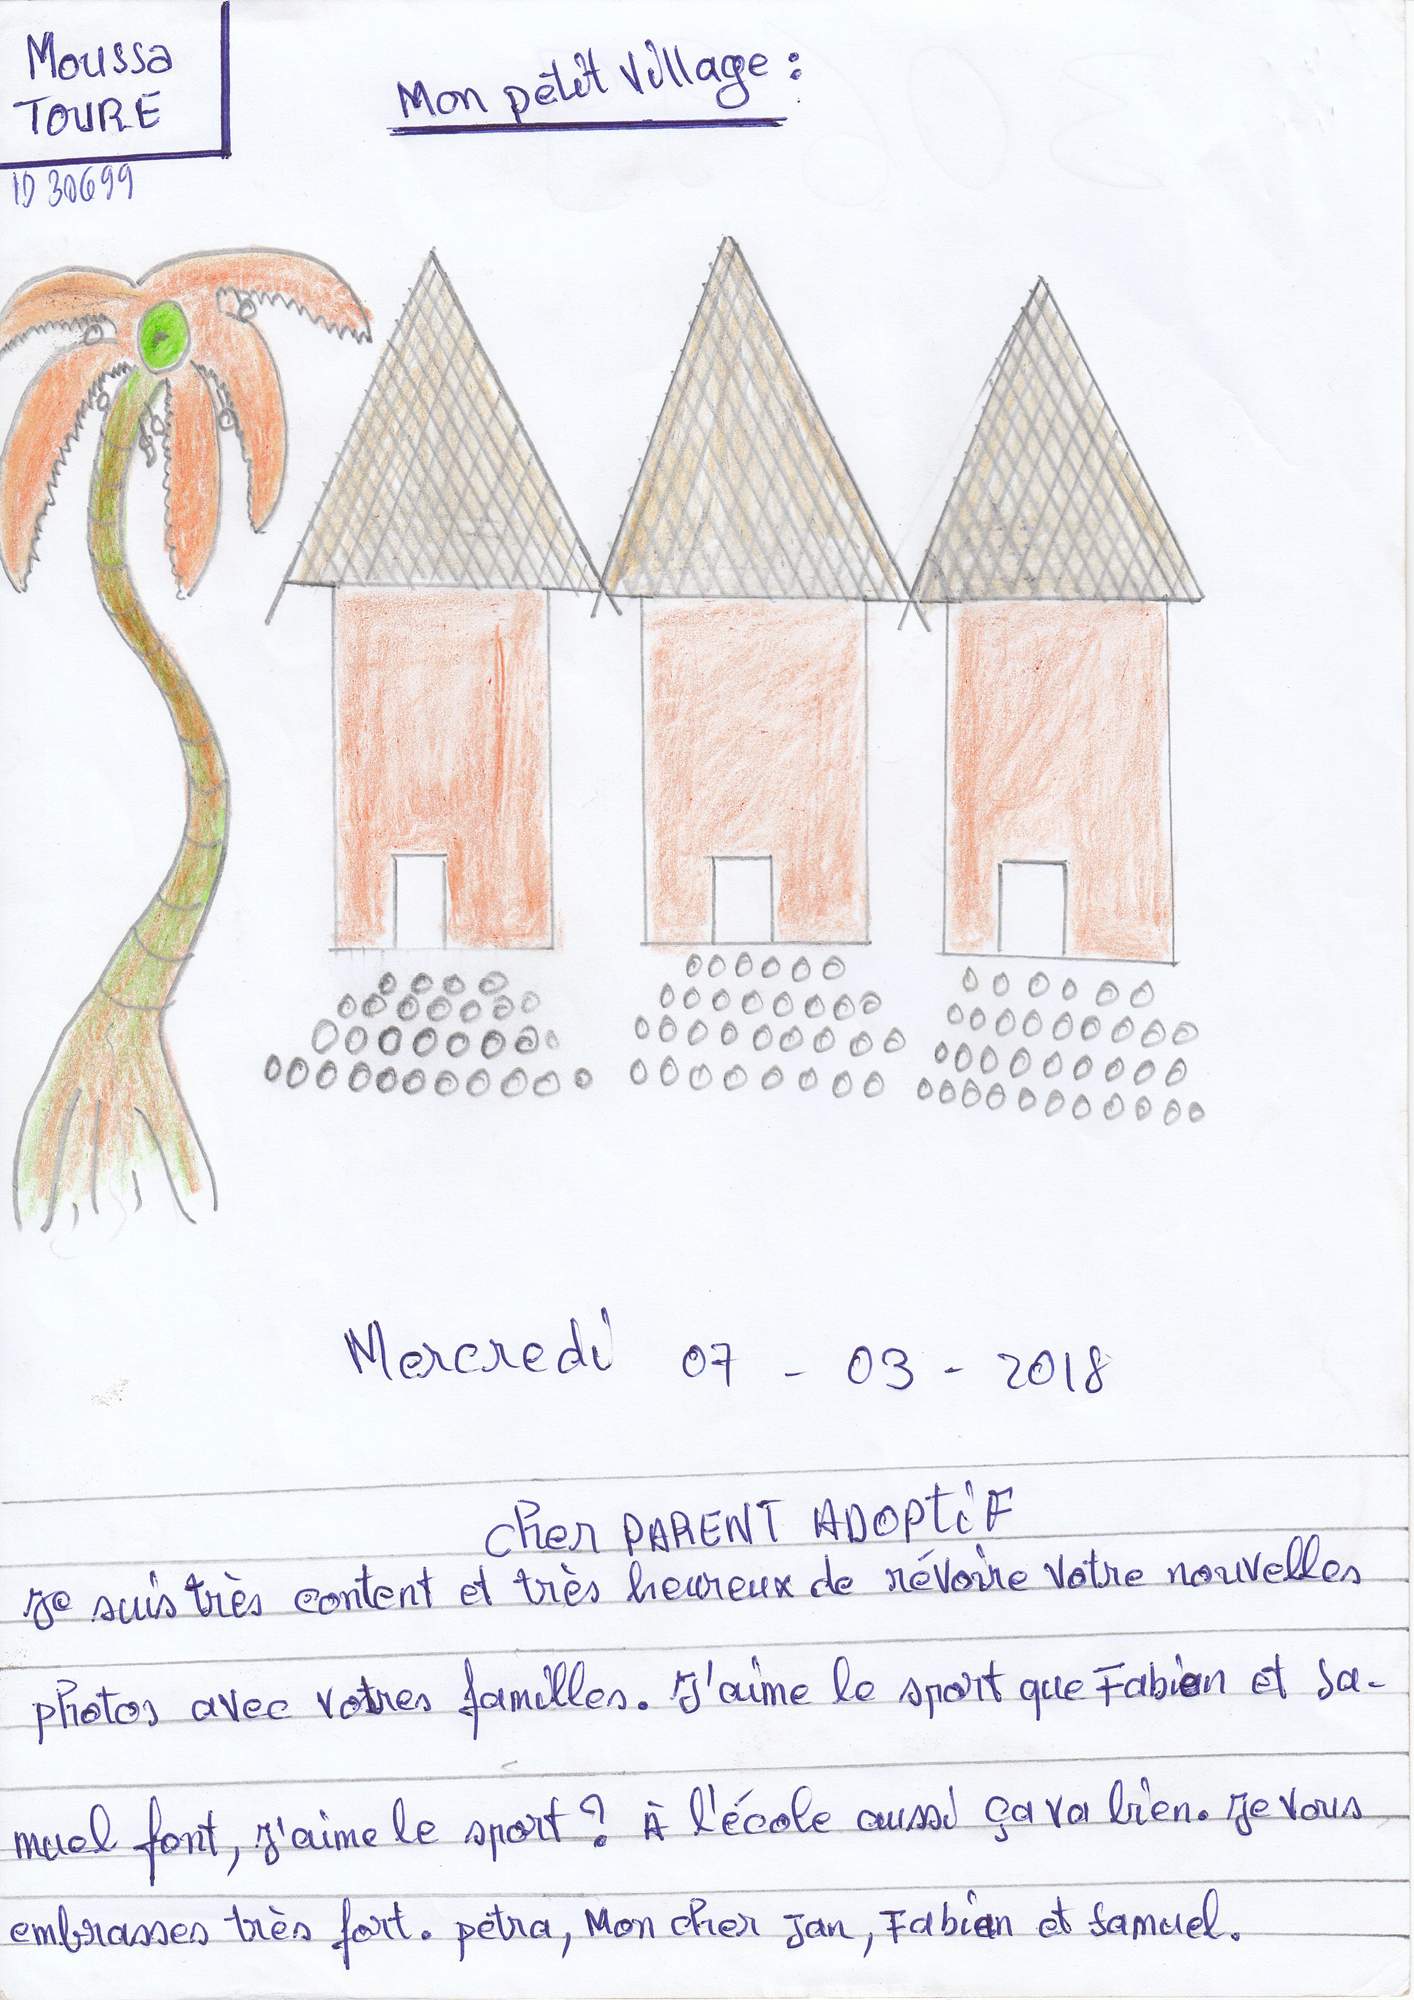 Moussa
TOURE
ID 30699
Mon pétit village :
Mercredi 07 - 03 - 2018
cher PARENT ADOPtiF
Je suis très content et très heureux de révoire votre nouvelles
photos avec votres familles. J'aime le sport que Fabien et Sa-
muel font, J'aime le sport ? À l'école aussi ça va bien. Je vous
embrasses très fort. pétra, Mon cher Jan, Fabien et Samuel.